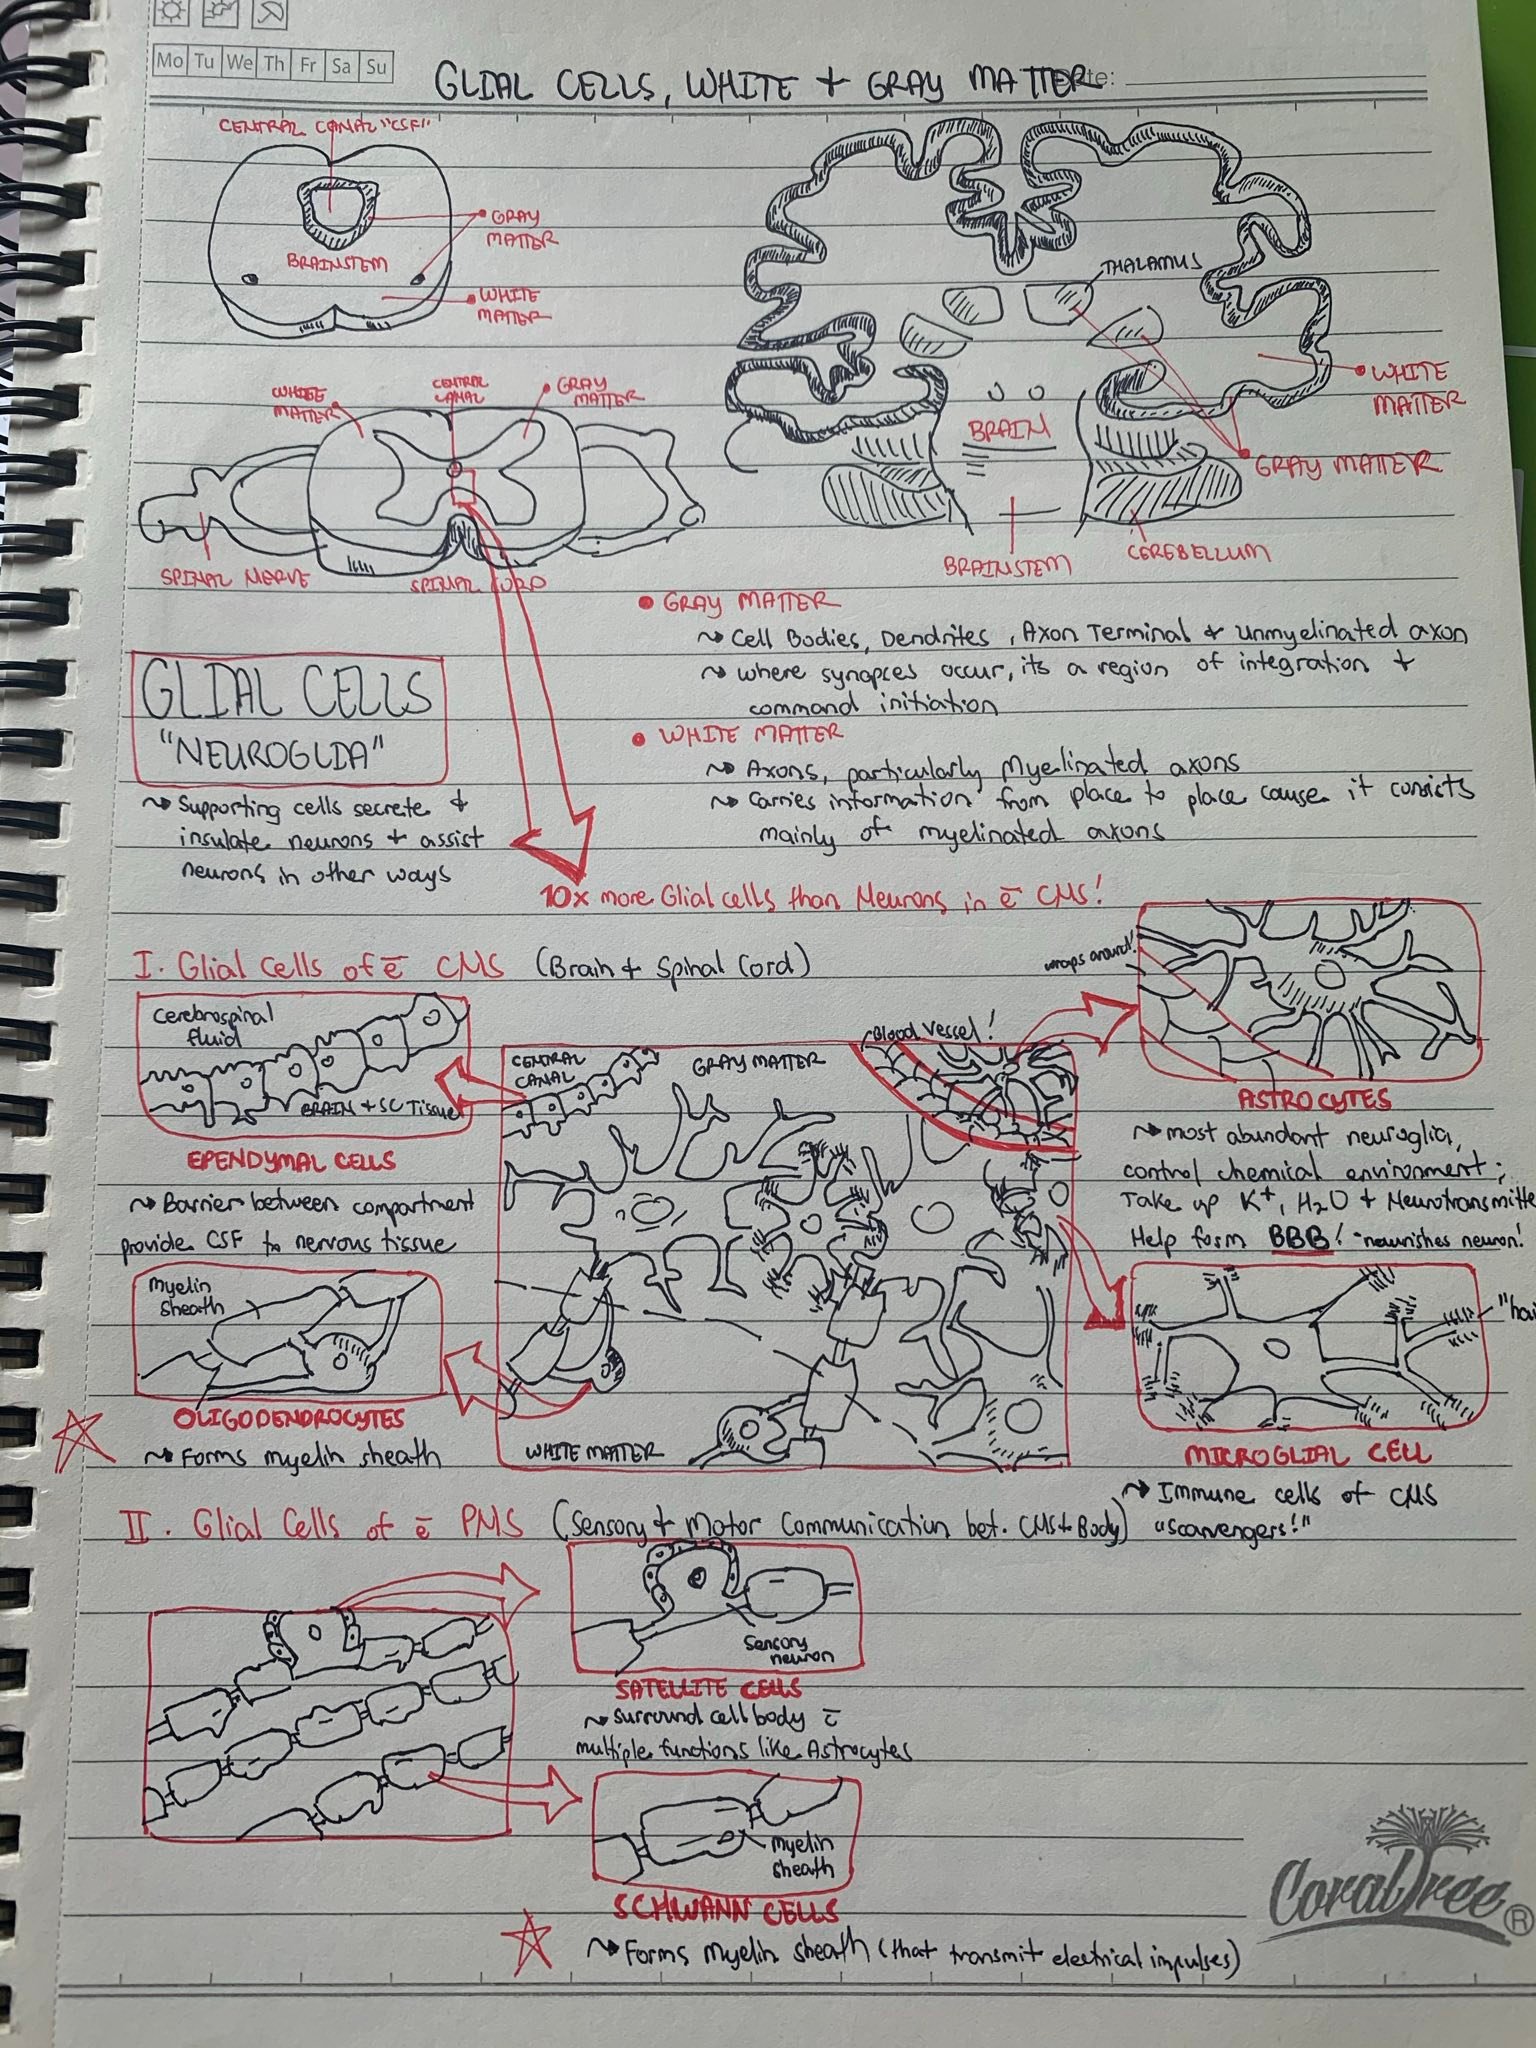 Mo Tu We Th Fr Sa Su
GLIAL CELLS, WHITE & GRAY MATTER
CENTRAL CANAL "CSF"
GRAY
MATTER
BRAINSTEM
WHITE
MATTER
THALAMUS
WHITE
MATTER
BRAIN
GRAY MATTER
BRAINSTEM
CEREBELLUM
WHITE
MATTER
CENTRAL
CANAL
GRAY
MATTER
SPINAL NERVE
SPINAL CORD
• GRAY MATTER
~> Cell Bodies, Dendrites, Axon Terminal & unmyelinated axon
~> where synapses occur, its a region of integration &
command initiation
• WHITE MATTER
~> Axons, particularly Myelinated axons
~> Carries information from place to place cause it consists
mainly of myelinated axons
GLIAL CELLS
"NEUROGLIA"
~> Supporting cells secrete &
insulate neurons & assist
neurons in other ways
10x more Glial cells than Neurons in ē CNS!
I. Glial Cells of ē CNS (Brain & Spinal Cord)
Cerebrospinal
fluid
BRAIN & SC Tissue
EPENDYMAL CELLS
~> Barrier between compartment
provide CSF to nervous tissue
myelin
sheath
OLIGODENDROCYTES
~> Forms myelin sheath
CENTRAL
CANAL
GRAY MATTER
Blood Vessel!
WHITE MATTER
wraps around!
ASTROCYTES
~> most abundant neuroglia,
control chemical environment;
Take up K+, H2O & Neurotransmitte
Help form BBB! - nourishes neuron!
"hai
MICROGLIAL CELL
~> Immune cells of CNS
"scavengers!"
II. Glial Cells of ē PNS (Sensory & Motor Communication bet. CNS & Body)
Sensory
neuron
SATELLITE CELLS
~> Surround cell body c̄
multiple functions like Astrocytes
myelin
sheath
SCHWANN CELLS
~> Forms Myelin sheath (that transmit electrical impulses)
CoralTree®